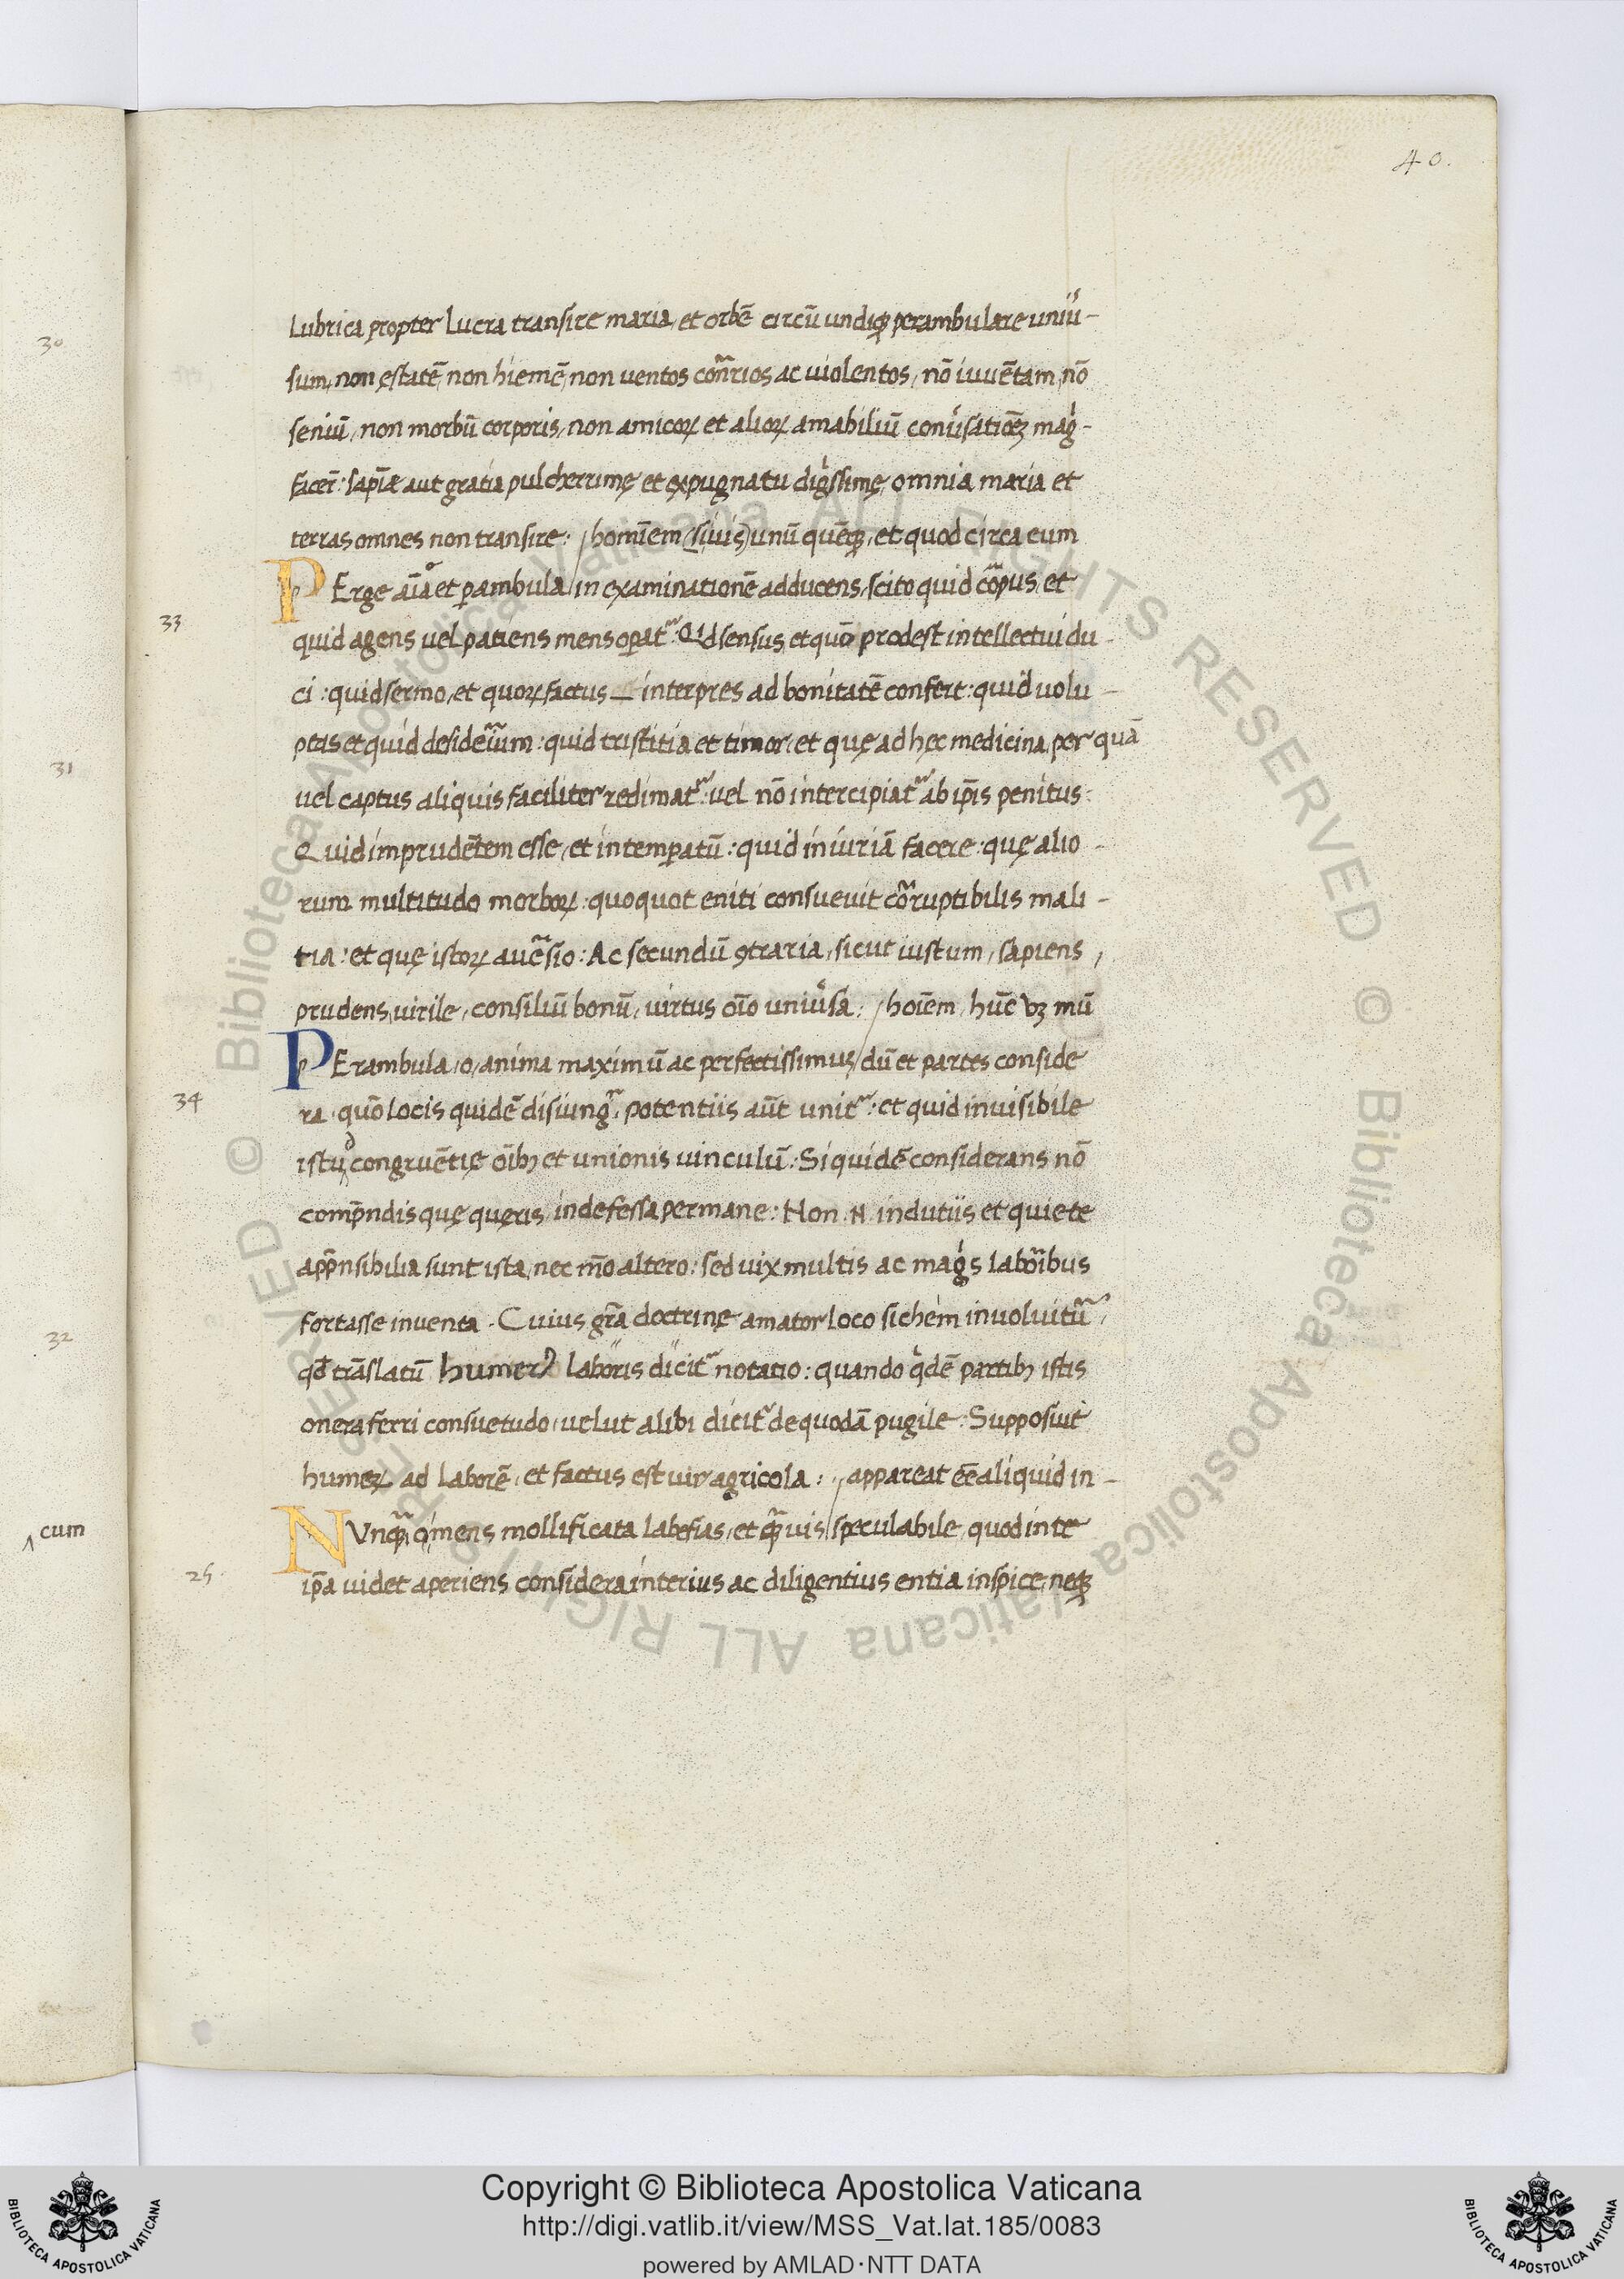 40.
Lubrica propter lucra transire maria, et orbē circū undiqȝ perambulare uniu͛-
sum, non ęstatē, non hiemē, non uentos cōñrios ac uiolentos, nō iuuētam, nō
seniū, non morbū corporis, non amicoꝝ et alioꝝ amabiliū conu͛satiōēȝ mag̍-
facer̄: sapiē aut gratia pulcherrimę et expugnatu dig̍ssimę, omnia maria et
terras omnes non transire: / homīem (si uis) unū quēqȝ, et quod circa eum
PErge aīa et ꝑambula / in examinationē adducens, scito quid cōꝛpus, et
33
quid agens uel patiens mens oꝑat᷑: Qd sensus, et quō prodest intellectui du-
ci: quid sermo, et quoꝝ factus _ interpres ad bonitatē confert: quid uolu-
ptas et quid desideriūm: quid tristitia et timor, et quę ad hęc medicina, per quā
uel captus aliquis faciliter redimat᷑: uel nō intercipiat᷑ ab ip̄is penitus:
Quid imprudētem esse, et intemꝑatū: quid iniuriā facere: quę alio-
rum multitudo morboꝝ: quoquot eniti consueuit cōꝛruptibilis mali-
tia: et quę istoꝝ auēꝛsio: Ac secundū ꝯtraria, sicut iustum, sapiens,
prudens, uirile, consiliū bonū, uirtus oīo uniu͛sa: / hoīem, hūc uȝ mū
PErambula, o, anima maximū ac perfectissimus / dū et partes conside
34
ra. quō locis quidē disiung᷑, potentiis aūt unit᷑: et quid inuisibile
istud congruētię oībȝ et unionis uinculū: Si quidē considerans nō
comp̄ndis quę quęris, indefessa permane: Non .n. indutiis et quiete
app̄nsibilia sunt ista, nec mō altero: sed uix multis ac mag̍s laboribus
fortasse inuenta. Cuius gr̄a doctrinę amator loco sichem inuoluitū᷑,
qd̄ trāslatū humerꝰ laboris dicit᷑ notatio: quando qdē partibȝ istis
onera ferri consuetudo, uelut alibi dicit᷑ de quodā pugile: Supposiut
humeꝝ ad laborē, et factus est uir agricola: / appareat eē aliquid in-
NUnqȝ, o, mens mollificata labefias, et qȝuis / speculabile, quod in te
25.
ip̄a uidet aperiens considera interius ac diligentius entia inspice, neqȝ
30
31
32
cum
Copyright © Biblioteca Apostolica Vaticana
http://digi.vatlib.it/view/MSS_Vat.lat.185/0083
powered by AMLAD·NTT DATA
BIBLIOTECA APOSTOLICA VATICANA
BIBLIOTECA APOSTOLICA VATICANA
© Biblioteca Apostolica Vaticana ALL RIGHTS RESERVED © Biblioteca Apostolica Vaticana ALL RIGHTS RESERVED